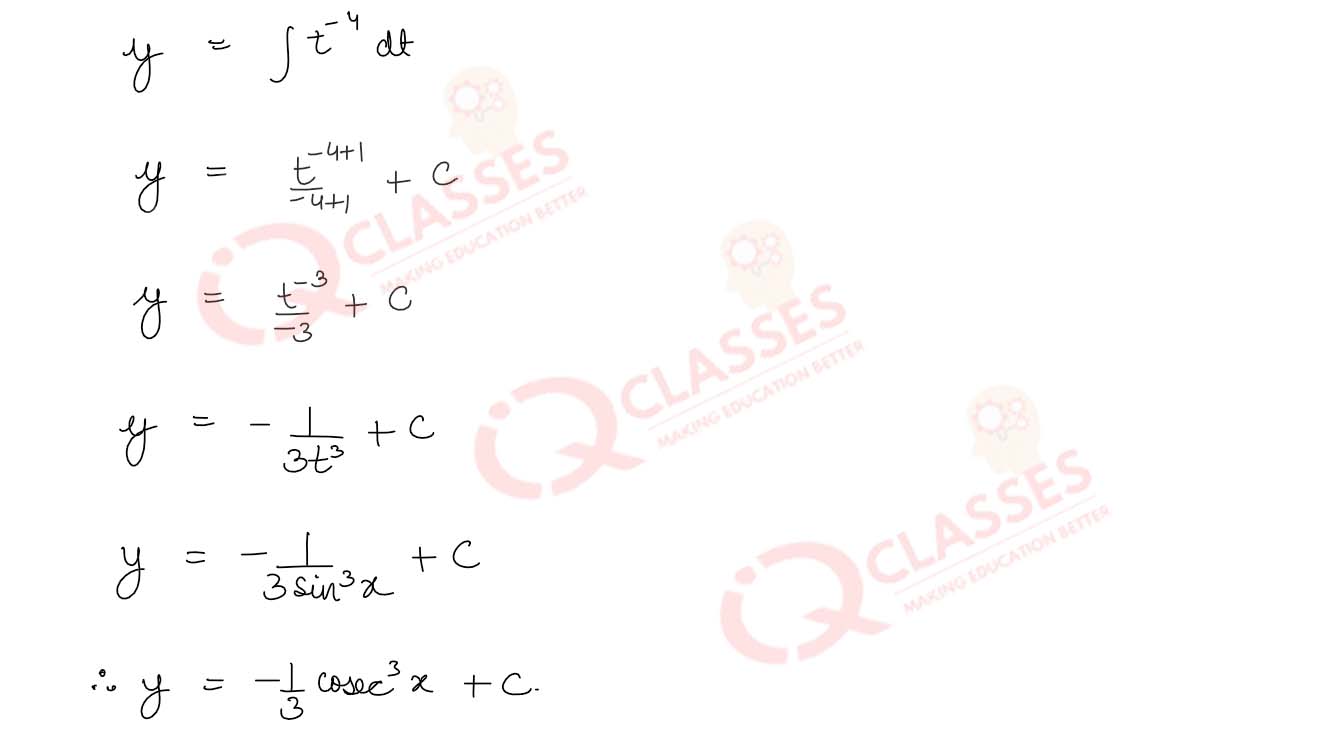 y = ∫ t⁻⁴ dt
y = t⁻⁴⁺¹/-4+1 + C
y = t⁻³/-3 + C
y = - 1/3t³ + C
y = - 1/3 sin³x + C
∴ y = -1/3 cosec³x + C.
iQ CLASSES
MAKING EDUCATION BETTER
iQ CLASSES
MAKING EDUCATION BETTER
iQ CLASSES
MAKING EDUCATION BETTER